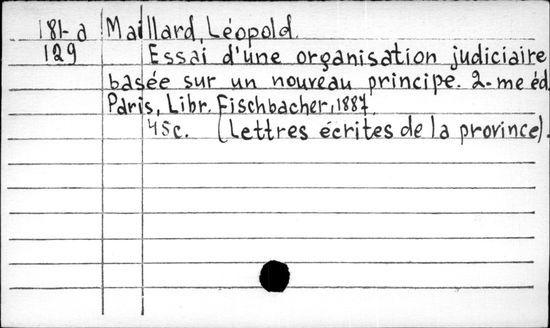 181-a Maillard, Léopold.
129 Essai d'une organisation judiciaire
basée sur un nouveau principe. 2-me éd.
Paris, Libr. Fischbacher, 1887.
45c. (Lettres écrites de la province).